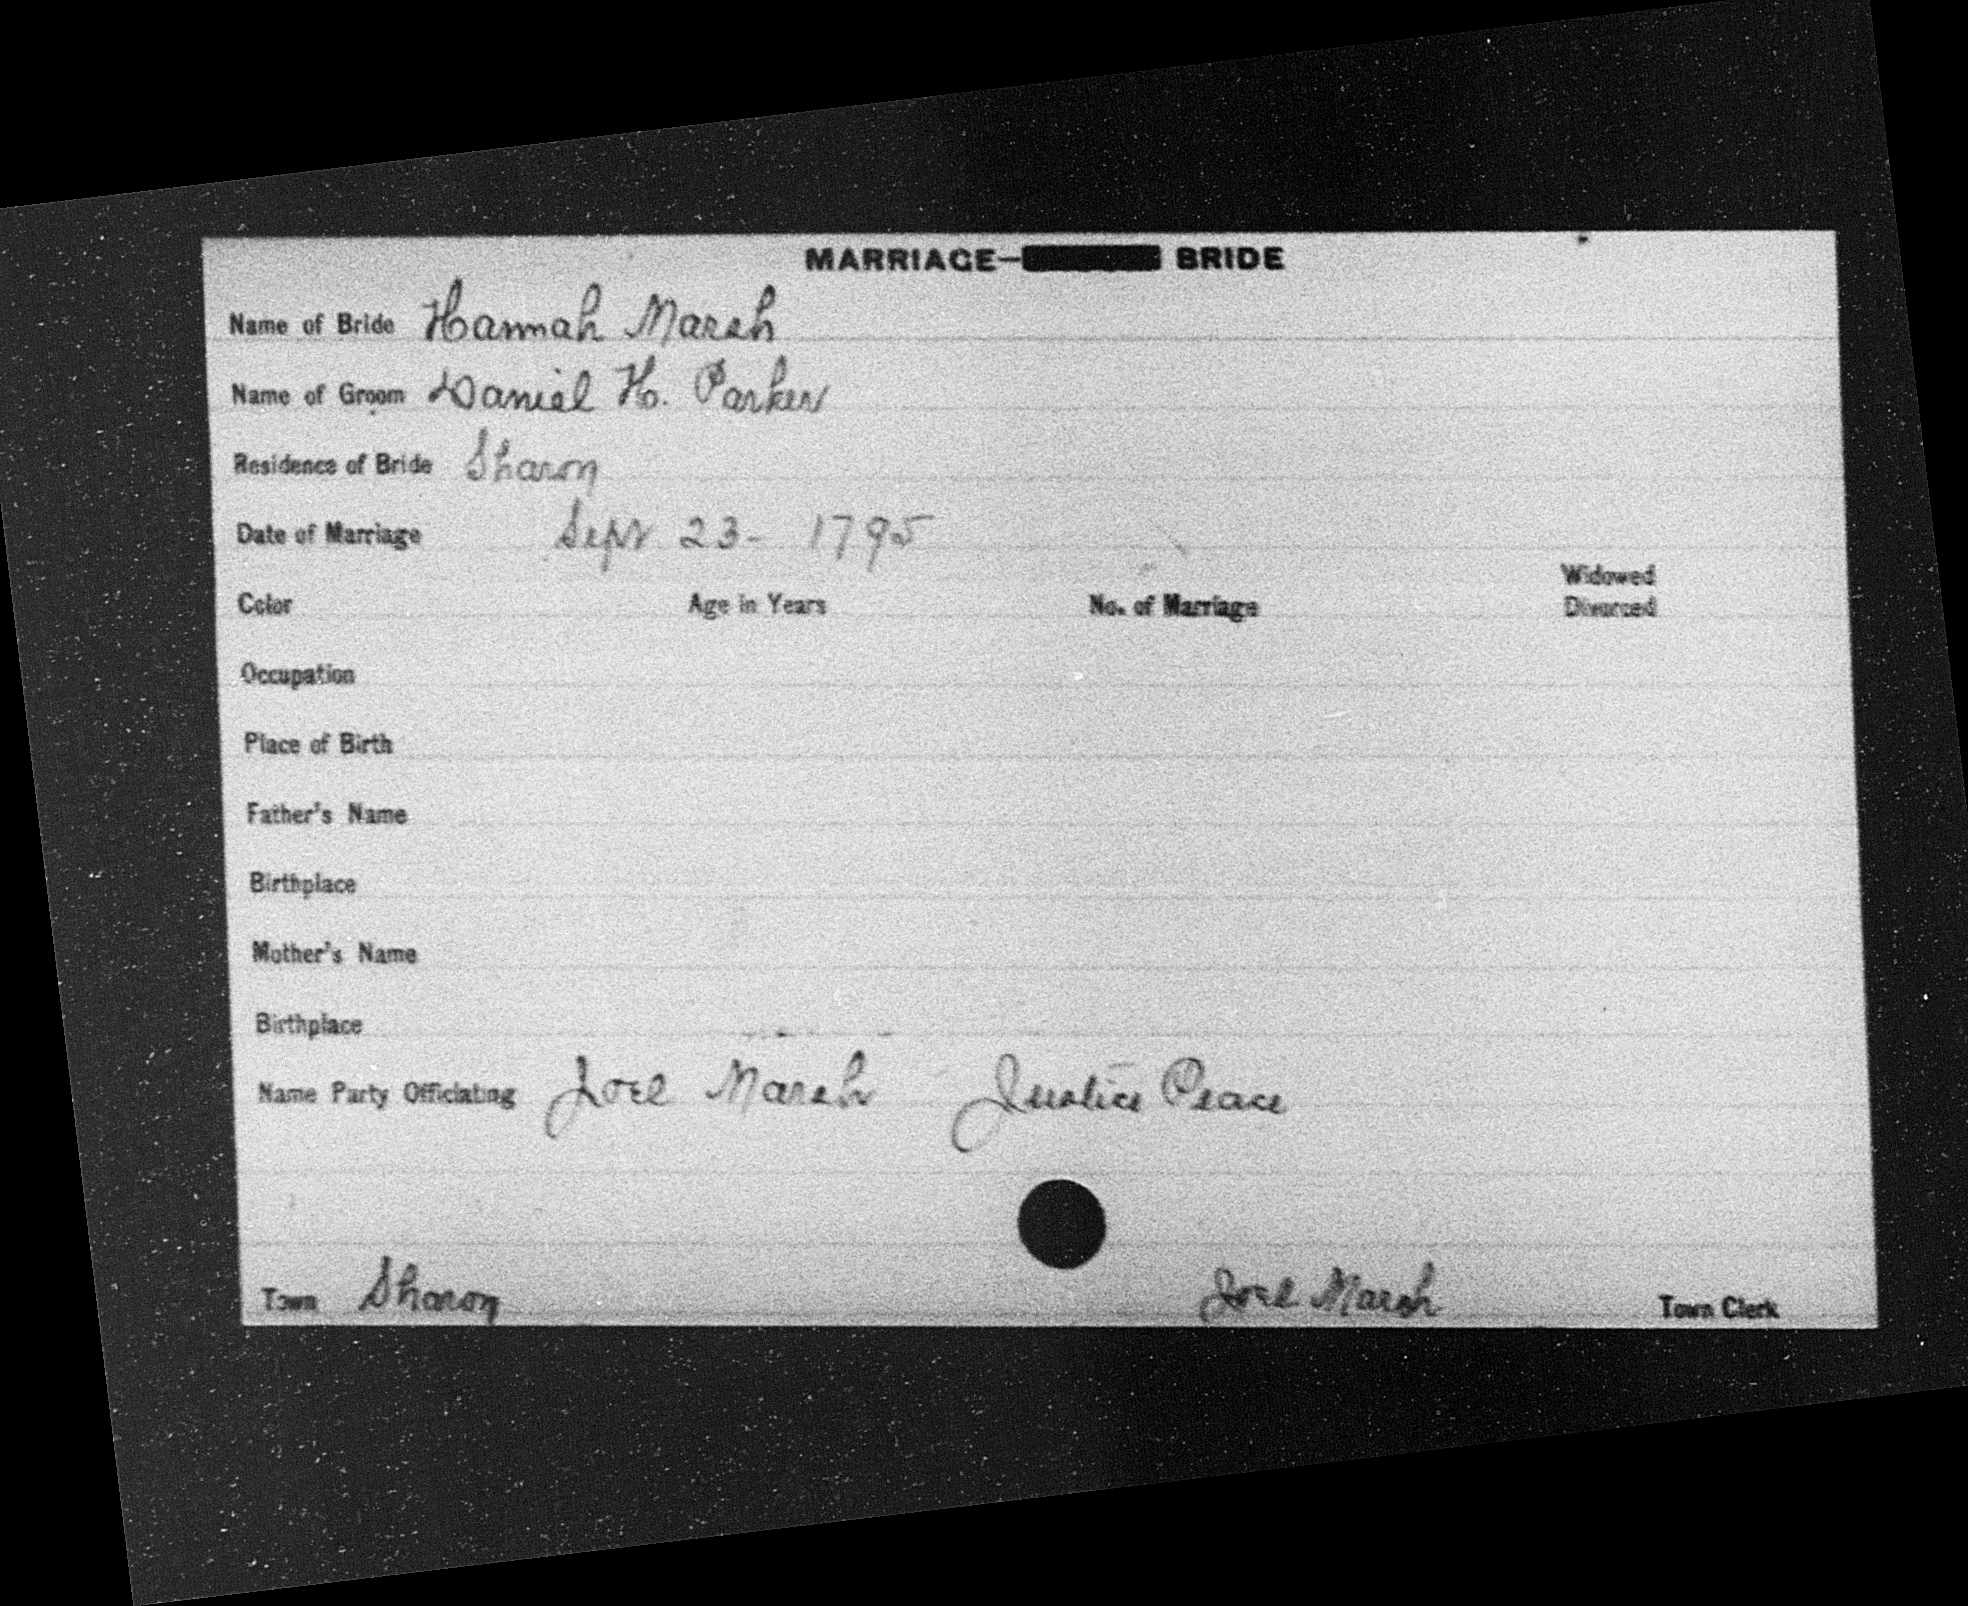 MARRIAGE— BRIDE
Name of Bride Hannah Marsh
Name of Groom Daniel H. Parker
Residence of Bride Sharon
Date of Marriage Sept 23- 1795
Widowed
Color Age in Years No. of Marriage Divorced
Occupation
Place of Birth
Father's Name
Birthplace
Mother's Name
Birthplace
Name Party Officiating Joel Marsh Justice Peace
Town Sharon Joel Marsh Town Clerk